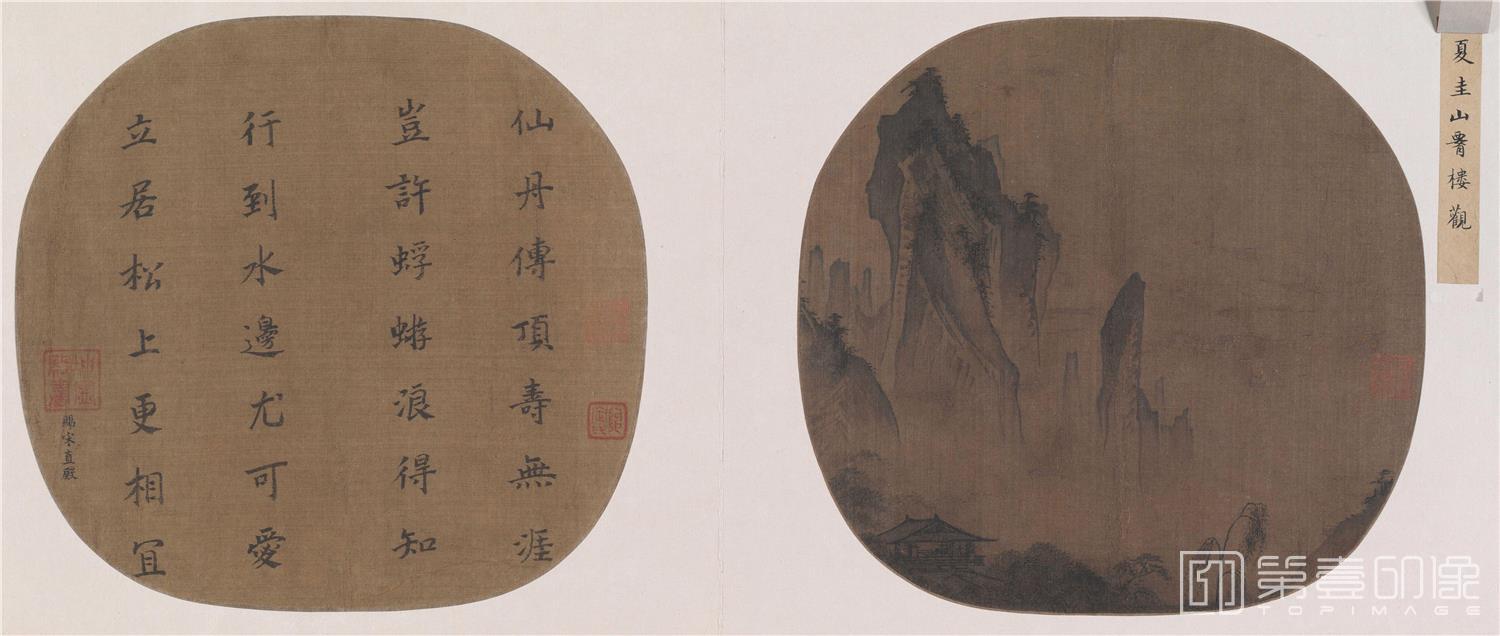 夏圭山𦠆楼觀
仙丹傳頂壽無涯
豈許蜉蝣浪得知
行到水邊尤可愛
立居松上更相冝
賜宋直殿
第壹印像
TOPIMAGE